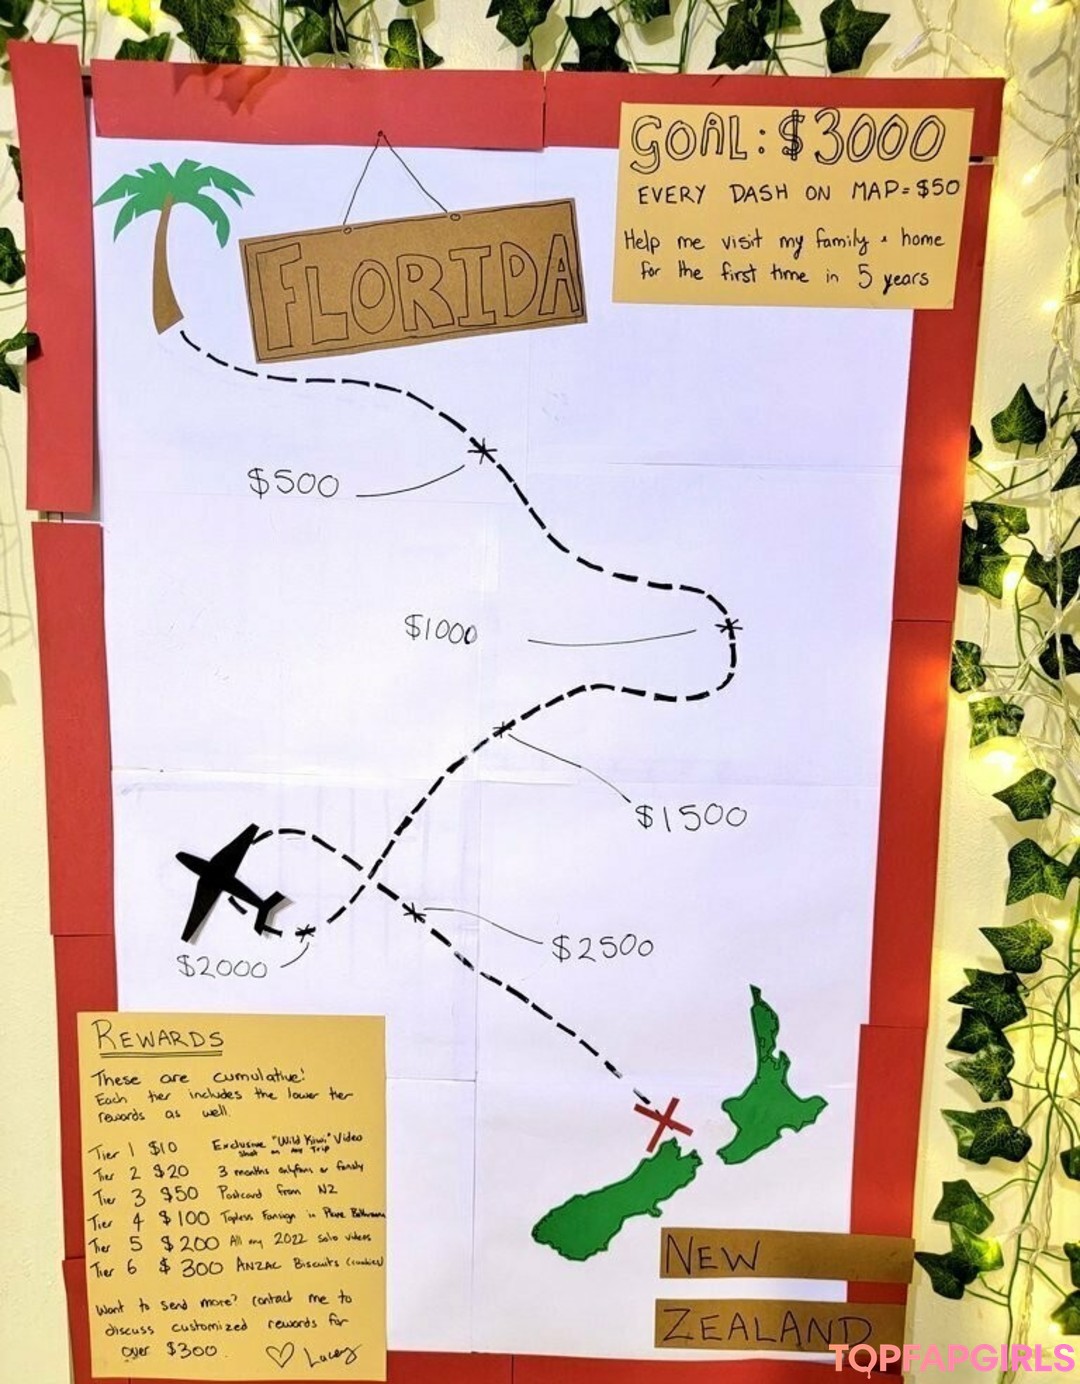 GOAL: $3000
EVERY DASH ON MAP = $50
Help me visit my family + home
for the first time in 5 years
FLORIDA
$500
$1000
$1500
$2500
$2000
REWARDS
These are cumulative!
Each tier includes the lower tier
rewards as well.
Tier 1 $10 Exclusive "Wild Kiwi" Video
shot on my Trip
Tier 2 $20 3 months onlyfans or fansly
Tier 3 $50 Postcard from NZ
Tier 4 $100 Topless Fansign in Plane Bathroom
Tier 5 $200 All my 2022 solo videos
Tier 6 $300 ANZAC Biscuits (cookies)
Want to send more? Contact me to
discuss customized rewards for
over $300. Lacey
NEW
ZEALAND
TOPFAPGIRLS